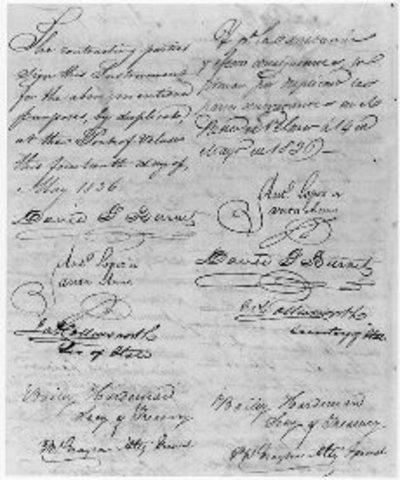 The contracting parties
sign this Instrument
for the above mentioned
purposes, by duplicate
at the Port of Velasco
this fourteenth day of
May 1836
David G Burnet
Anto. Lopez de
Santa Anna
Jas Collinsworth
Sec of State
Bailey Hardeman
Secy of Treasury
PW Grayson Atty General
Y pa. la
y efectos consiguientes, lo
firman por duplicado las
partes
en Velasco á 14 de
Mayo de 1836
Anto. Lopez de
Santa Anna
David G Burnet
Jas Collinsworth
Secretary of State
Bailey Hardeman
Secy of Treasury
PW Grayson Atty General